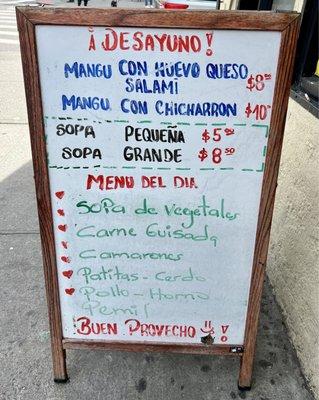 ¡DESAYUNO!
MANGU CON HUEVO QUESO
SALAMI $8⁵⁰
MANGU CON CHICHARRON $10
SOPA PEQUEÑA $5⁵⁰
SOPA GRANDE $8⁵⁰
MENU DEL DIA
Sopa de Vegetales
Carne Guisada
Camarones
Patitas - Cerdo
Pollo - Horno
Pernil
BUEN PROVECHO !